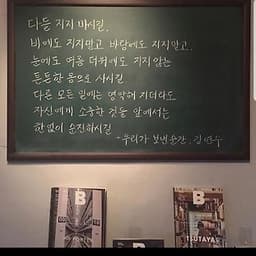 다들 지지 마시길.
비에도 지지말고 바람에도 지지말고.
눈에도 여름 더위에도 지지 않는
튼튼한 몸으로 사시길
다른 모든 일에는 영악해 지더라도
자신에게 소중한 것들 앞에서는
한없이 순진하시길
-우리가 보낸 순간. 김연수
B
B
B
TSUTAYA